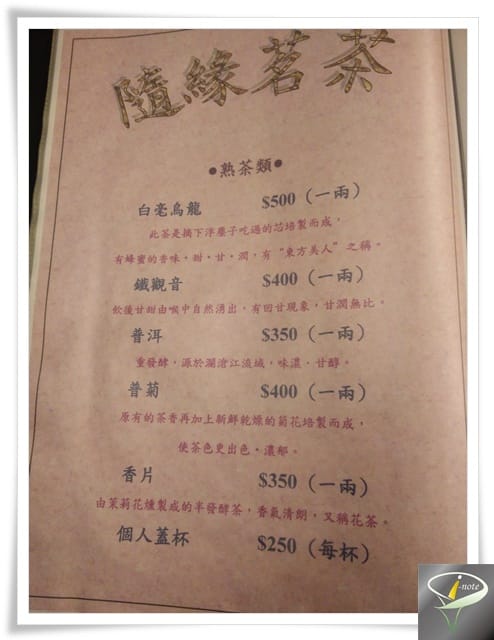 隨緣茗茶
●熟茶類●
白毫烏龍 $500(一兩)
此茶是摘下浮塵子吃過的芯培製而成,
有蜂蜜的香味,甜,甘,潤,有“東方美人”之稱。
鐵觀音 $400(一兩)
飲後甘甜由喉中自然湧出,有回甘現象,甘潤無比。
普洱 $350(一兩)
重發酵,源於瀾滄江流域,味濃,甘醇。
普菊 $400(一兩)
原有的茶香再加上新鮮乾燥的菊花培製而成,
使茶色更出色,濃郁。
香片 $350(一兩)
由茉莉花燻製成的半發酵茶,香氣清朗,又稱花茶。
個人蓋杯 $250(每杯)
i-note